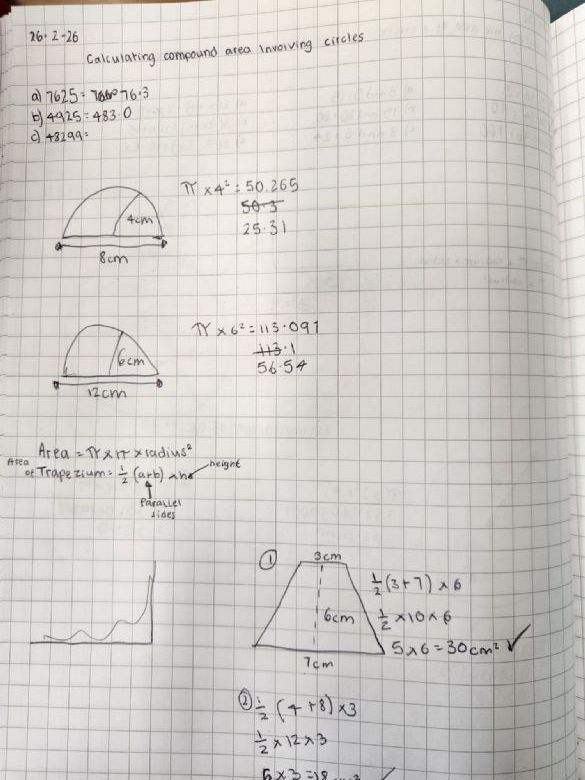 26·2-26
Calculating compound area involving circles
a) 7625 = 76·3
b) 4925 = 483·0
c) 48299=
4cm
8cm
π × 4² = 50.265
50·3
25·31
6cm
12cm
π × 6² = 113·097
113·1
56·54
Area = π × r × radius²
Area of Trapezium = 1/2 (a+b) × h
height
Parallel
sides
① 3cm
6cm
7cm
1/2 (3+7) × 6
1/2 × 10 × 6
5×6 = 30cm² ✓
② 1/2 (4+8) × 3
1/2 × 12 × 3
6×3 = 18